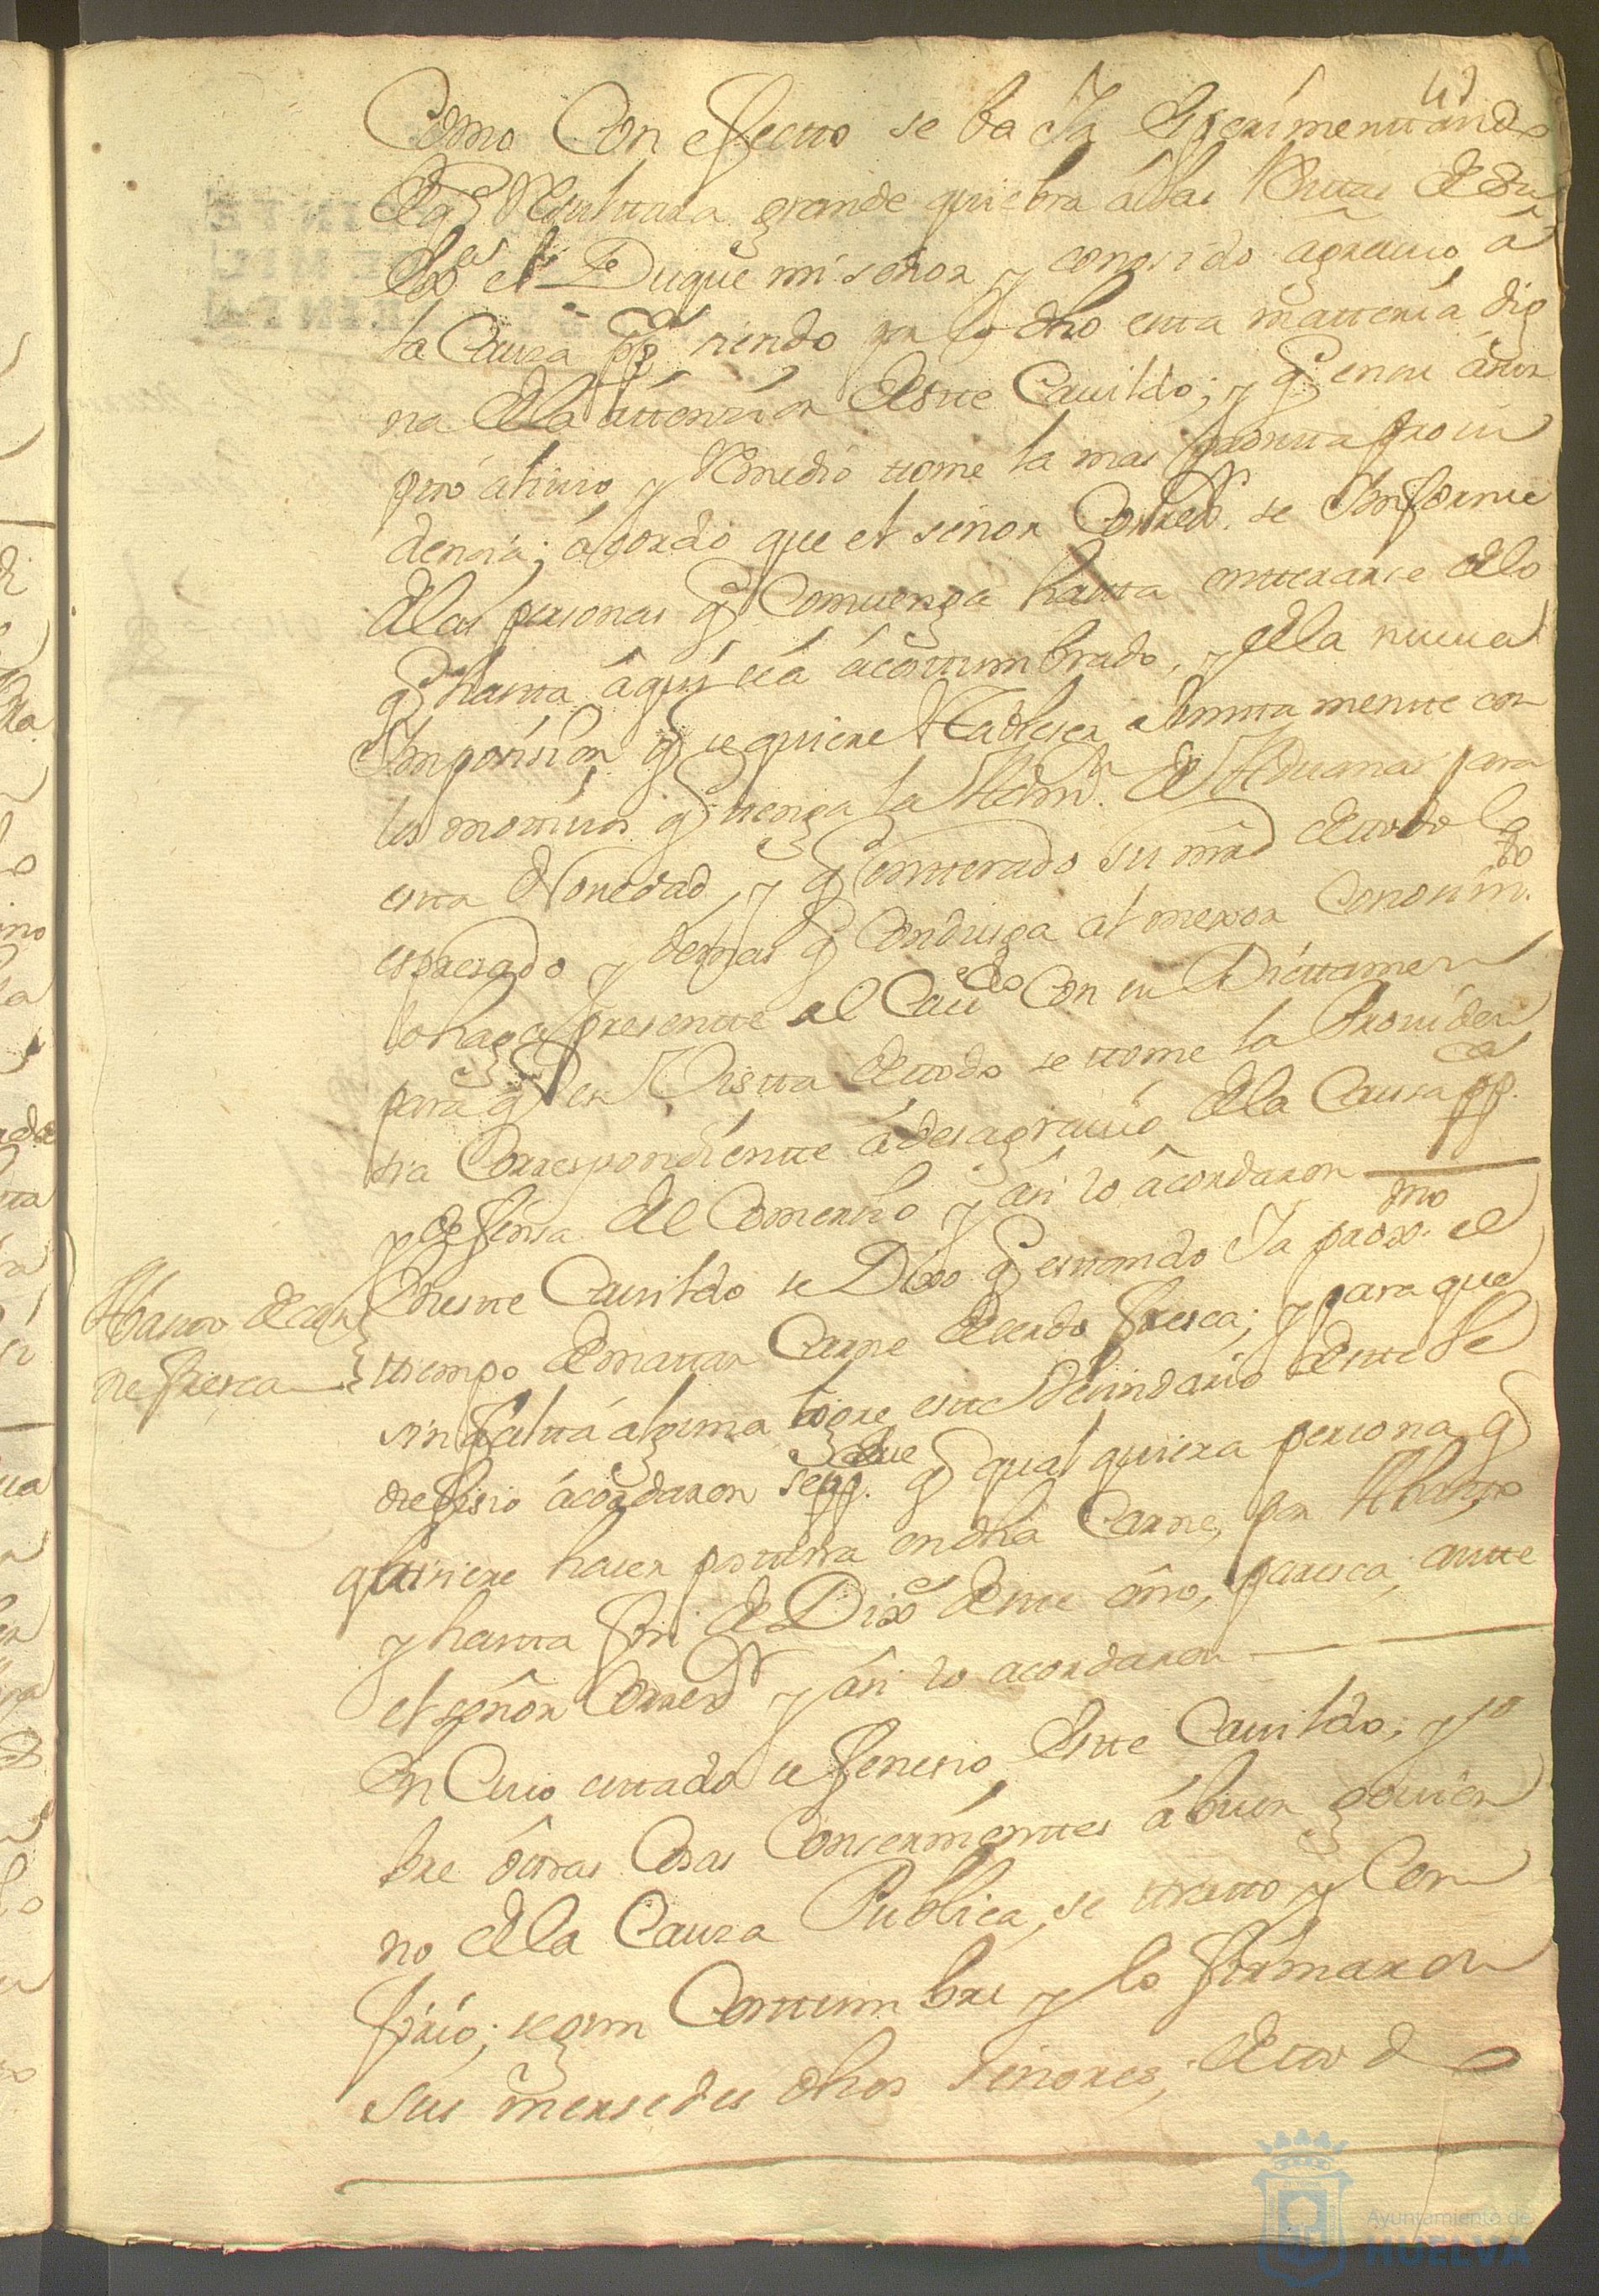 Como Con effectto se ba Ya Experimenttando
de q Resulttara grande quiebra â las Renttas de Su
Exa el Duque mi señor y conosido agravio â
la Causa ppca siendo por lo dho estta matteria dig
na de la attenzion de estte Cavildo; y q en su
pero alivio y Remedio ttome la mas prontta provi
denzia; acordó que el señor Corredr. se Informe
de las personas q Comvenga hastta entterarse de lo
q hastta aqui sea acosttumbrado, y de la nueva
Imposision q se quiere Establecer Juntta mentte con
los mottivos q ttenga la Admon. de Aduanas para
estta Novedad y q entterado su md de ttodo lo
espresado y demas q Condusga al mexor Conosimto.
lo haga presentte al Cavdo Con su Dicttamen
para q en Vistta de ttodo se ttome la Providen
sia Correspondientte a desagravio de la Causa ppca.
y defensa del Comersio y asi lo acordaron
Abasto de car
ne fresca
En estte Cavildo se Dixo q esttando Ya proxmo. el
ttiempo de mattar Carne de cerdo fresca; y para que
sin faltta alguna logre estte Vesindario de estte be
nefisio acordaron se ppque q qual quiera persona q
quisiere hacer posttura en dha Carne, por Abastto
y hastta fin de Dixe de estte año, paresca, antte
el señor Corredr y asi lo acordaron
En Cuio esttado se fenesio Estte Cavildo; y so
bre ôttras Cosas Consernienttes á buen govier
no de la Causa Publica, se ttratto y Con
firio; segun Costtumbre y lo firmaron
Sus mersedes dhos señores, de ttodo
Ayuntamiento de
HUELVA